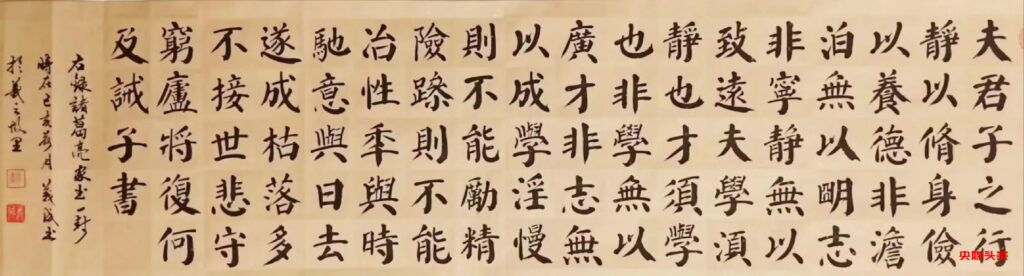 夫君子之行
靜以脩身儉
以養德非澹
泊無以眀志
非寧靜無以
致遠夫學須
靜也才須學
也非學無以
廣才非志無
以成學淫慢
則不能勵精
險躁則不能
冶性秊與時
馳意與日去
遂成枯落多
不接世悲守
窮廬將復何
及誡子書
右錄諸葛亮家書一
時在己亥月
於羲之故里